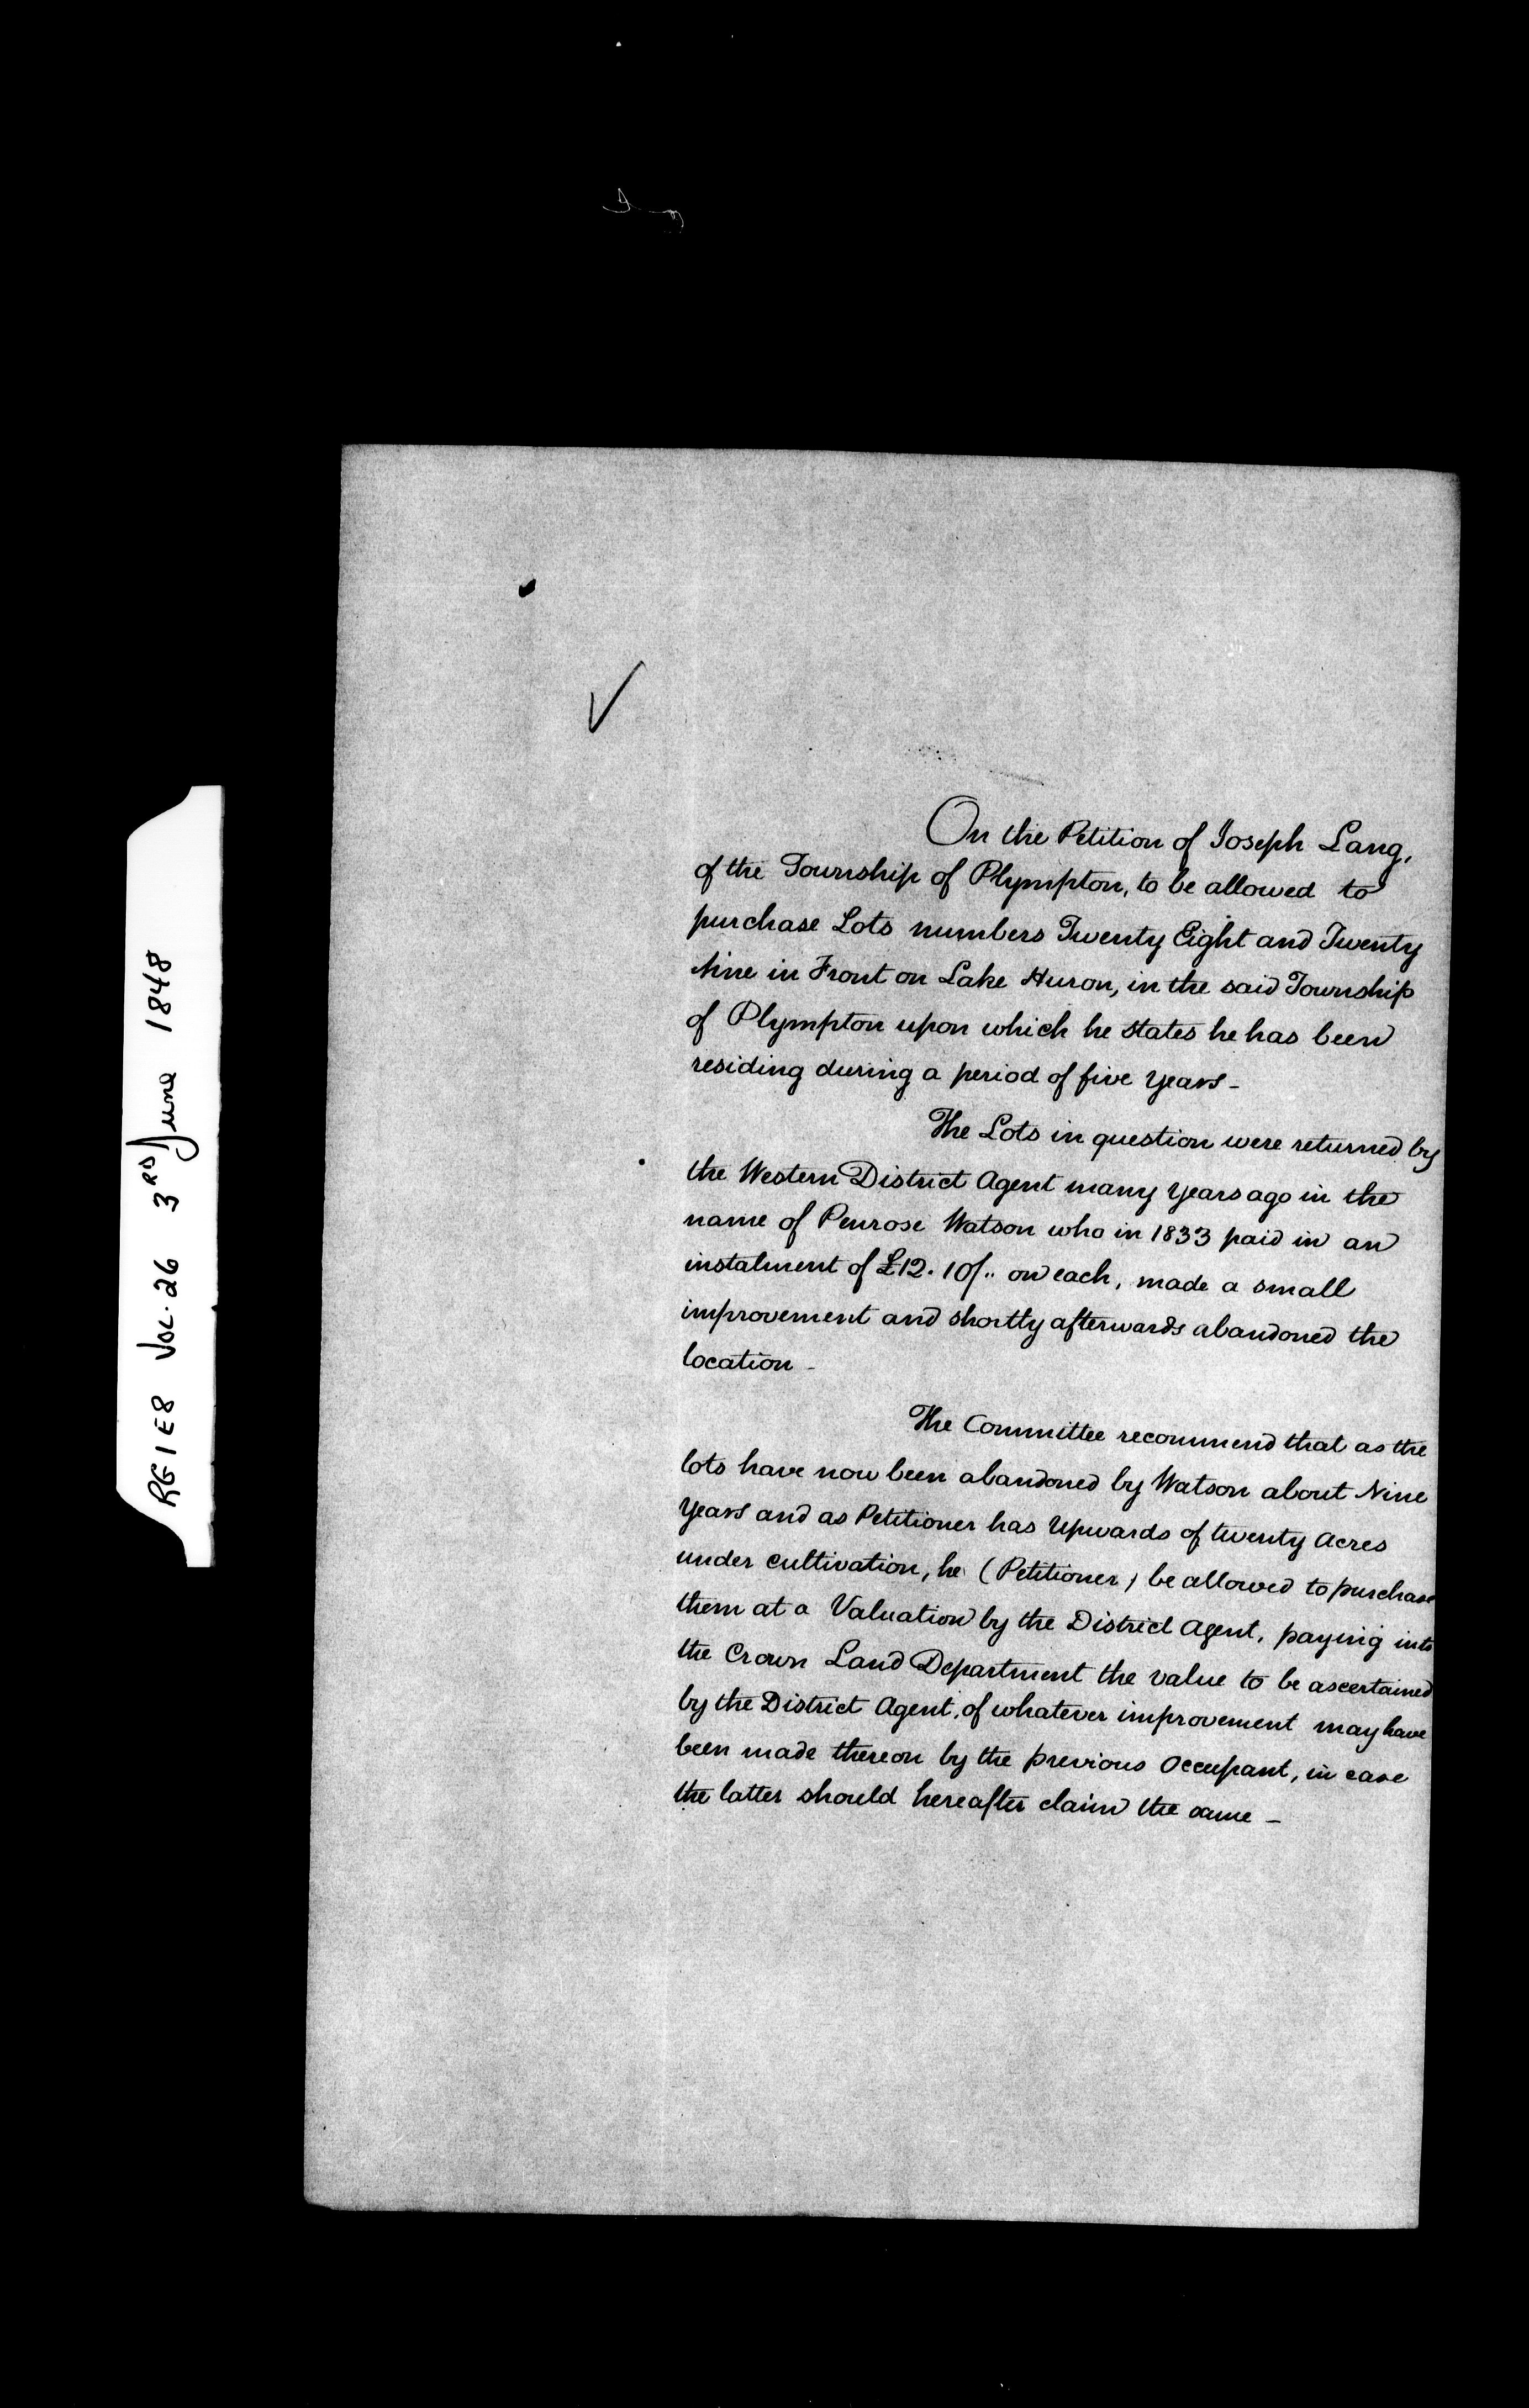 RG 1 E8 Vol. 26 3RD June 1848
On the Petition of Joseph Lang,
of the Township of Plympton, to be allowed to
purchase Lots numbers Twenty Eight and Twenty
Nine in Front on Lake Huron, in the said Township
of Plympton upon which he states he has been
residing during a period of five years -
The Lots in question were returned by
the Western District Agent many years ago in the
name of Penrose Watson who in 1833 paid in an
instalment of £12. 10/.. on each, made a small
improvement and shortly afterwards abandoned the
location -
The Committee recommend that as the
lots have now been abandoned by Watson about Nine
Years and as Petitioner has Upwards of twenty Acres
under cultivation, he (Petitioner) be allowed to purchase
them at a Valuation by the District Agent, paying into
the Crown Land Department the value to be ascertained
by the District Agent, of whatever improvement may have
been made thereon by the previous Occupant, in case
the latter should hereafter claim the same -